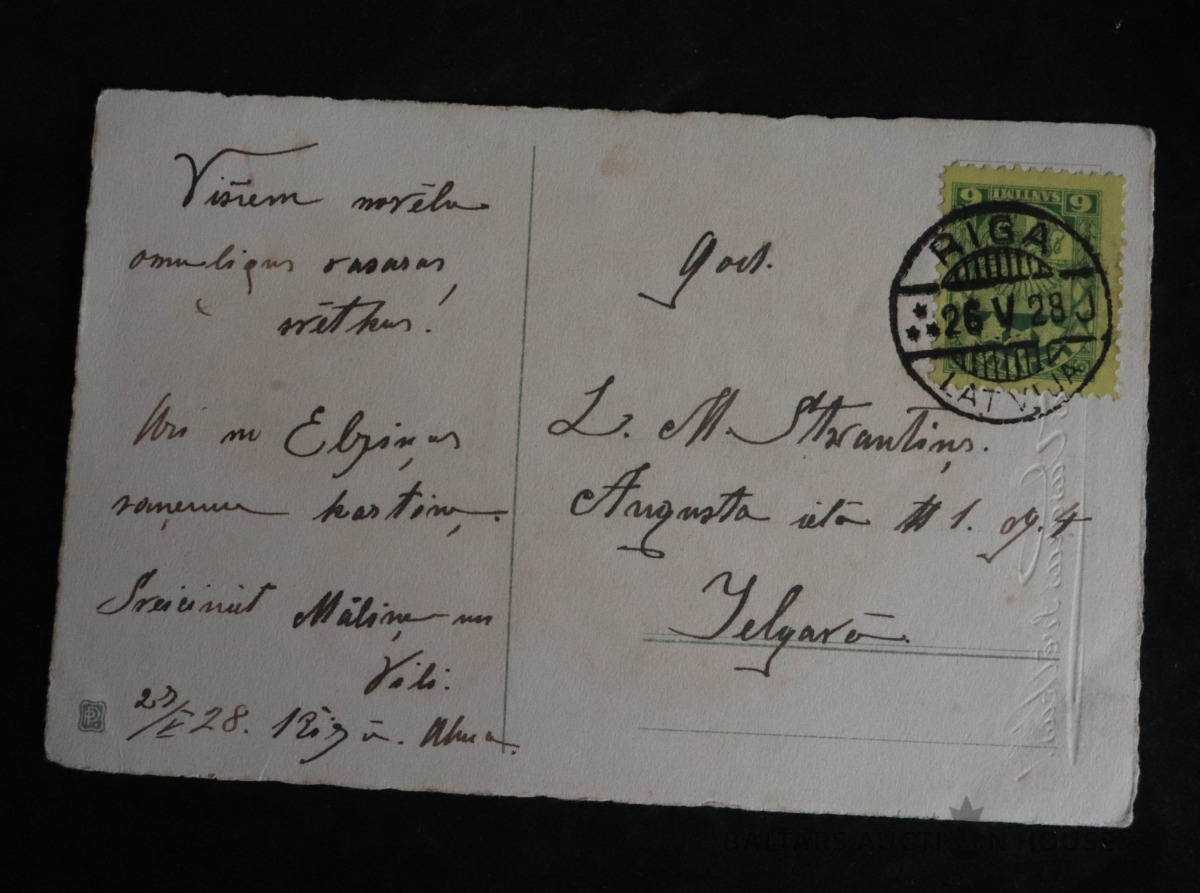 Visiem novēlu
omulīgus vasaras
svētkus.
Ari no Elziņas
saņemu kartiņu.
Sveiciniet Māliņu un
Vili.
V 28. Rīgā. Alma.
God.
L. M. Strautiņš.
Augusta ielā № 1. dz. 4
Jelgavā.
9 SANTIMI 9
RIGA
26 V 28
LATVIJA
BALTARS AUCTION HOUSE